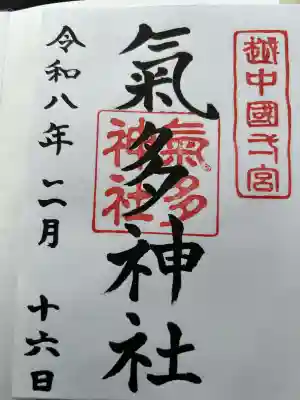 越中國弌宮
氣多神社
氣多
神社
令和八年二月 十六日